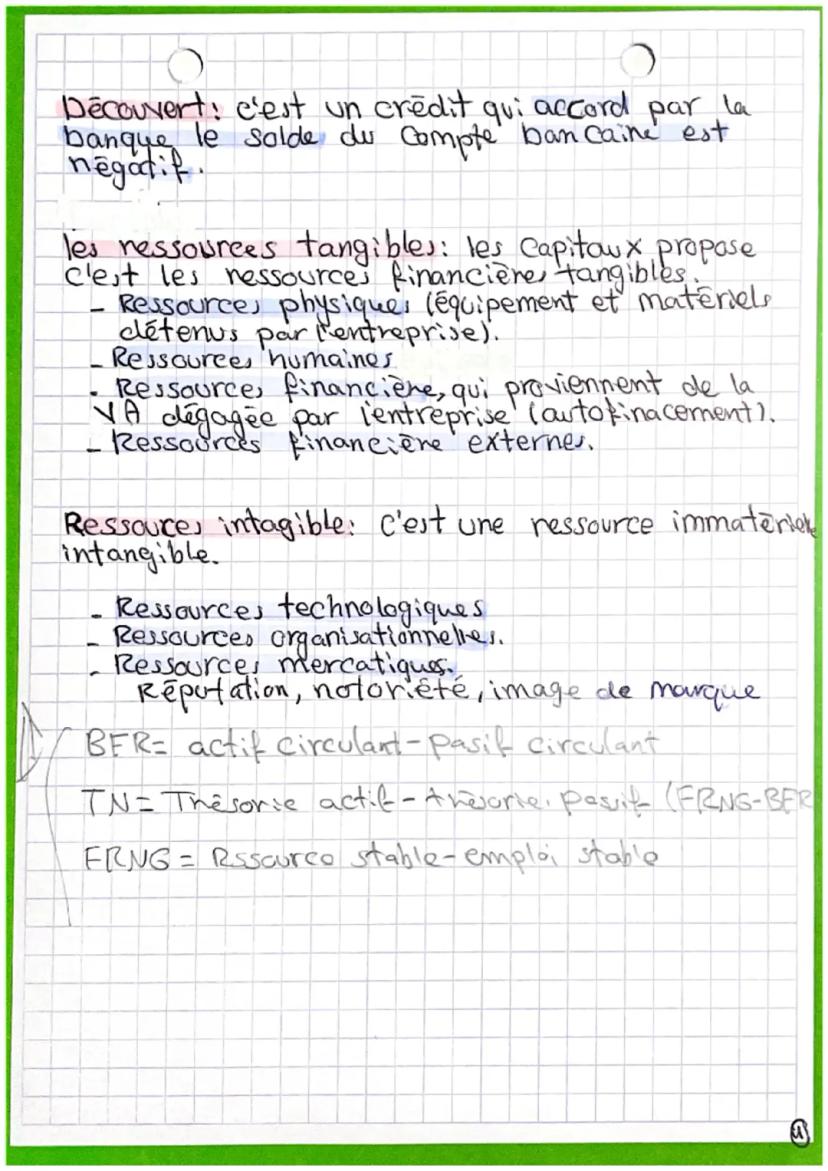 Découvert: c'est un crédit qui accord par la
banque, le solde du compte bancaine est
négatif.
les ressources tangibles: les capitaux propose
c'est les ressources financière, tangibles.
- Ressources physiques (équipement et matériels
détenus par l'entreprise).
- Ressources humaines
- Ressources financière, qui proviennent de la
VA dégagée par l'entreprise (autofinacement).
- Ressources financière externes.
Ressouces intagible: c'est une ressource immatériel
intangible.
- Ressources technologiques
- Ressources organisationnelles.
- Ressources mercatiques.
Réputation, notoriété, image de marque
BFR= actif circulant-pasif circulant
TN= Thésorie actif- thésorie. passif (FRNG-BFR
FRNG = Rssource stable-emploi stable